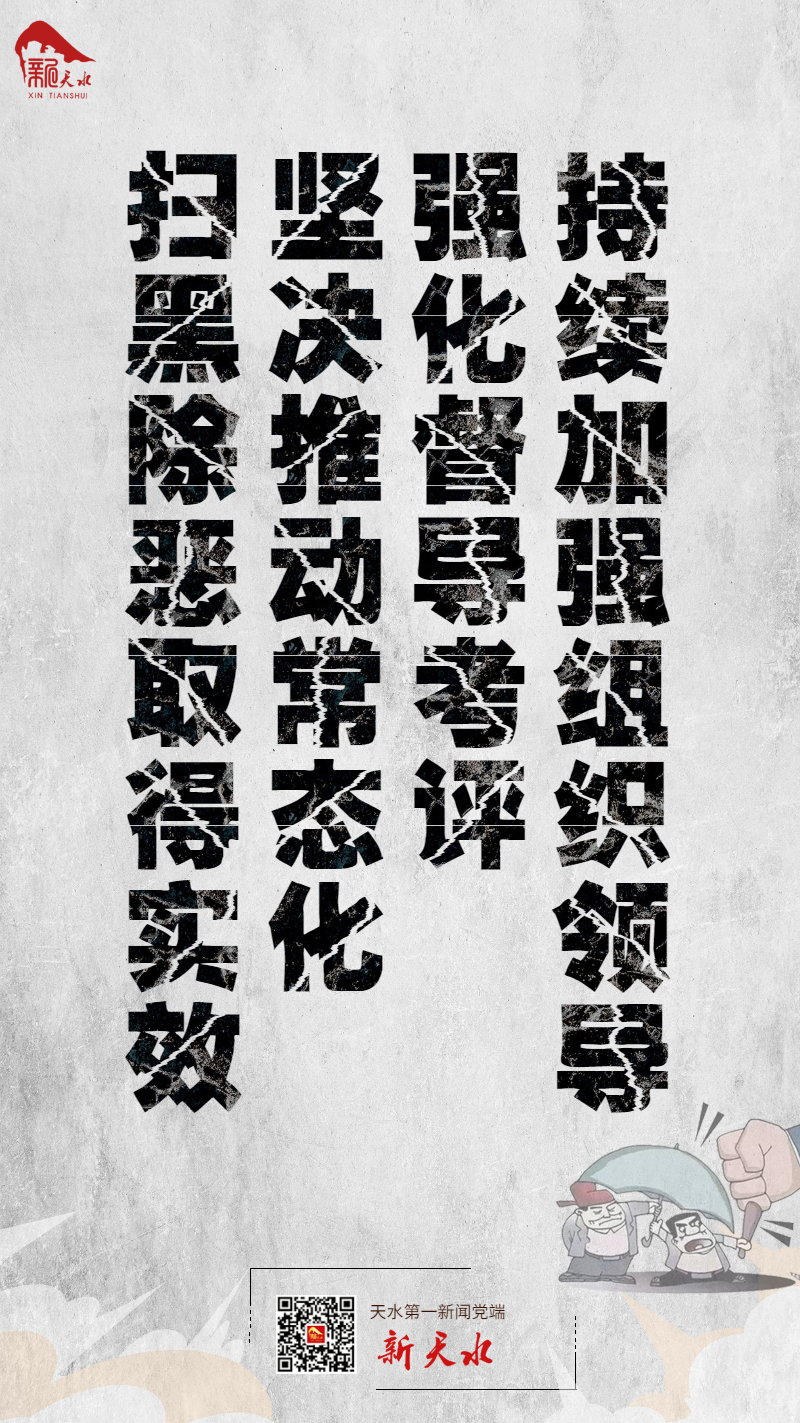 新天水
XIN TIANSHUI
持续加强组织领导
强化督导考评
坚决推动常态化
扫黑除恶取得实效
天水第一新闻党端
新天水